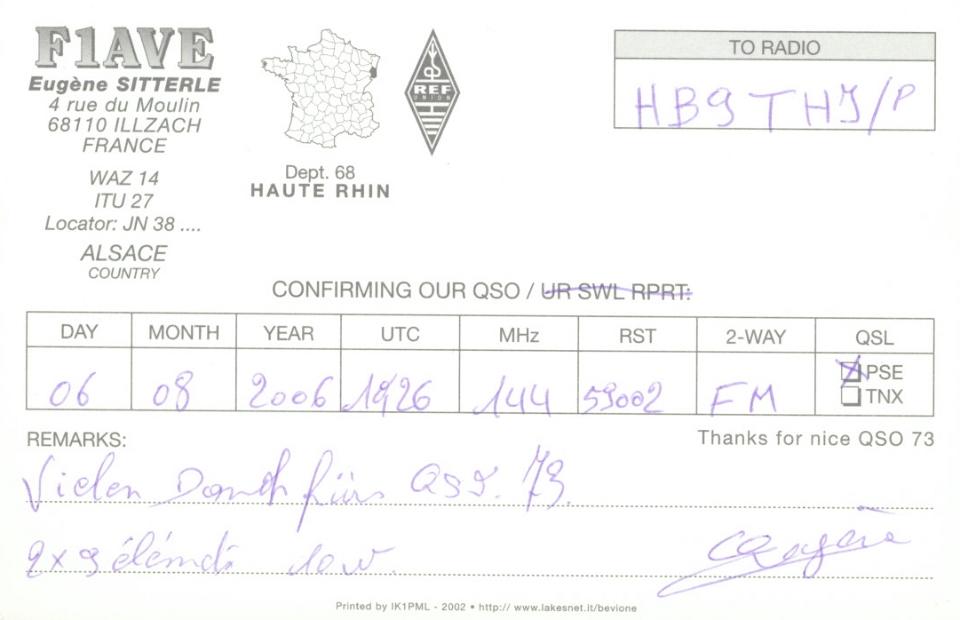 F1AVE
Eugène SITTERLE
4 rue du Moulin
68110 ILLZACH
FRANCE
WAZ 14
ITU 27
Locator: JN 38 ....
ALSACE
COUNTRY
REF
UNION
Dept. 68
HAUTE RHIN
TO RADIO
HB9THJ/P
CONFIRMING OUR QSO / UR SWL RPRT:
DAY MONTH YEAR UTC MHz RST 2-WAY QSL
06 08 2006 1926 144 59002 FM
PSE
TNX
REMARKS:
Thanks for nice QSO 73
Vielen Dank fürs QSO. 73.
2x9 éléments 10w.
Eugène
Printed by IK1PML - 2002 • http:// www.lakesnet.it/bevione